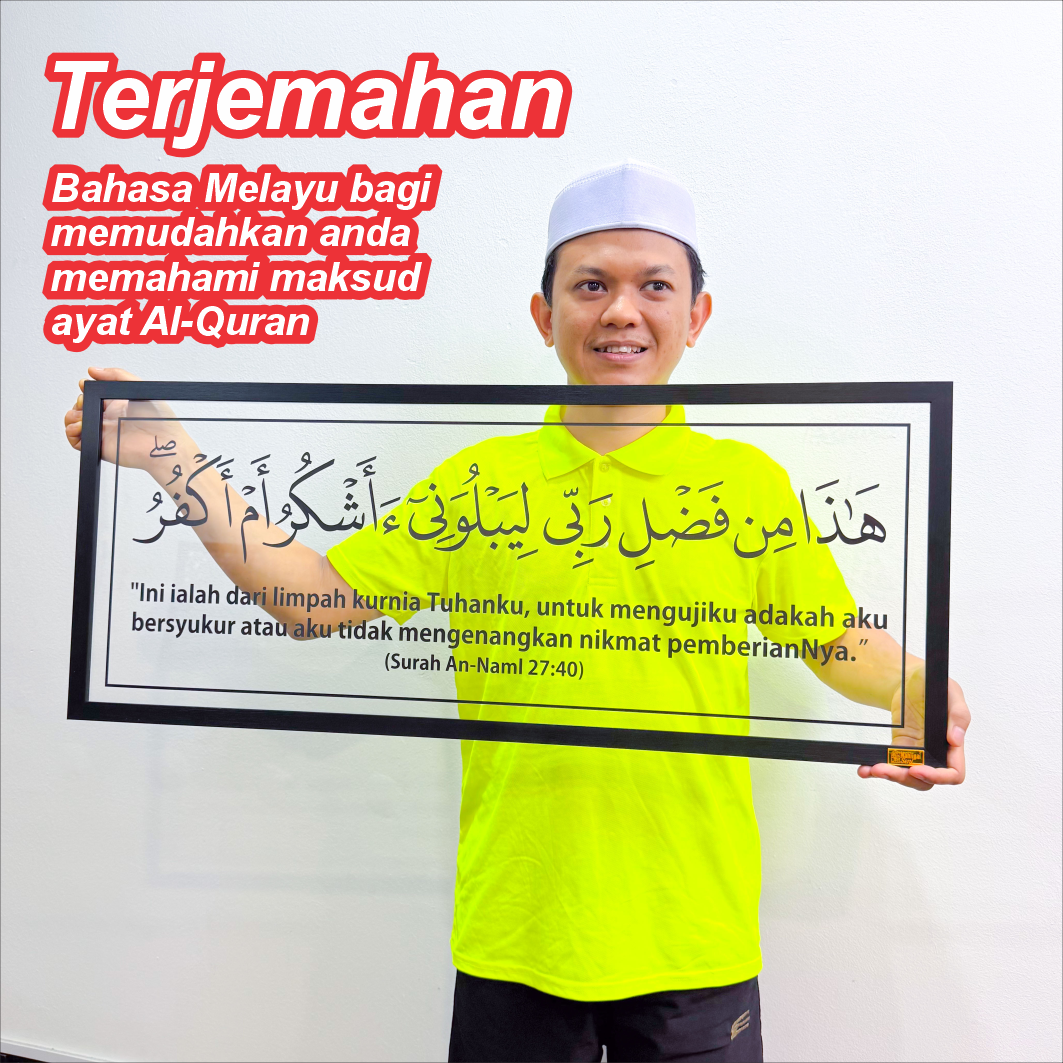 Terjemahan
Bahasa Melayu bagi
memudahkan anda
memahami maksud
ayat Al-Quran
هَٰذَا مِن فَضْلِ رَبِّى لِيَبْلُوَنِىٓ ءَأَشْكُرُ أَمْ أَكْفُرُ ۖ
"Ini ialah dari limpah kurnia Tuhanku, untuk mengujiku adakah aku
bersyukur atau aku tidak mengenangkan nikmat pemberianNya.”
(Surah An-Naml 27:40)